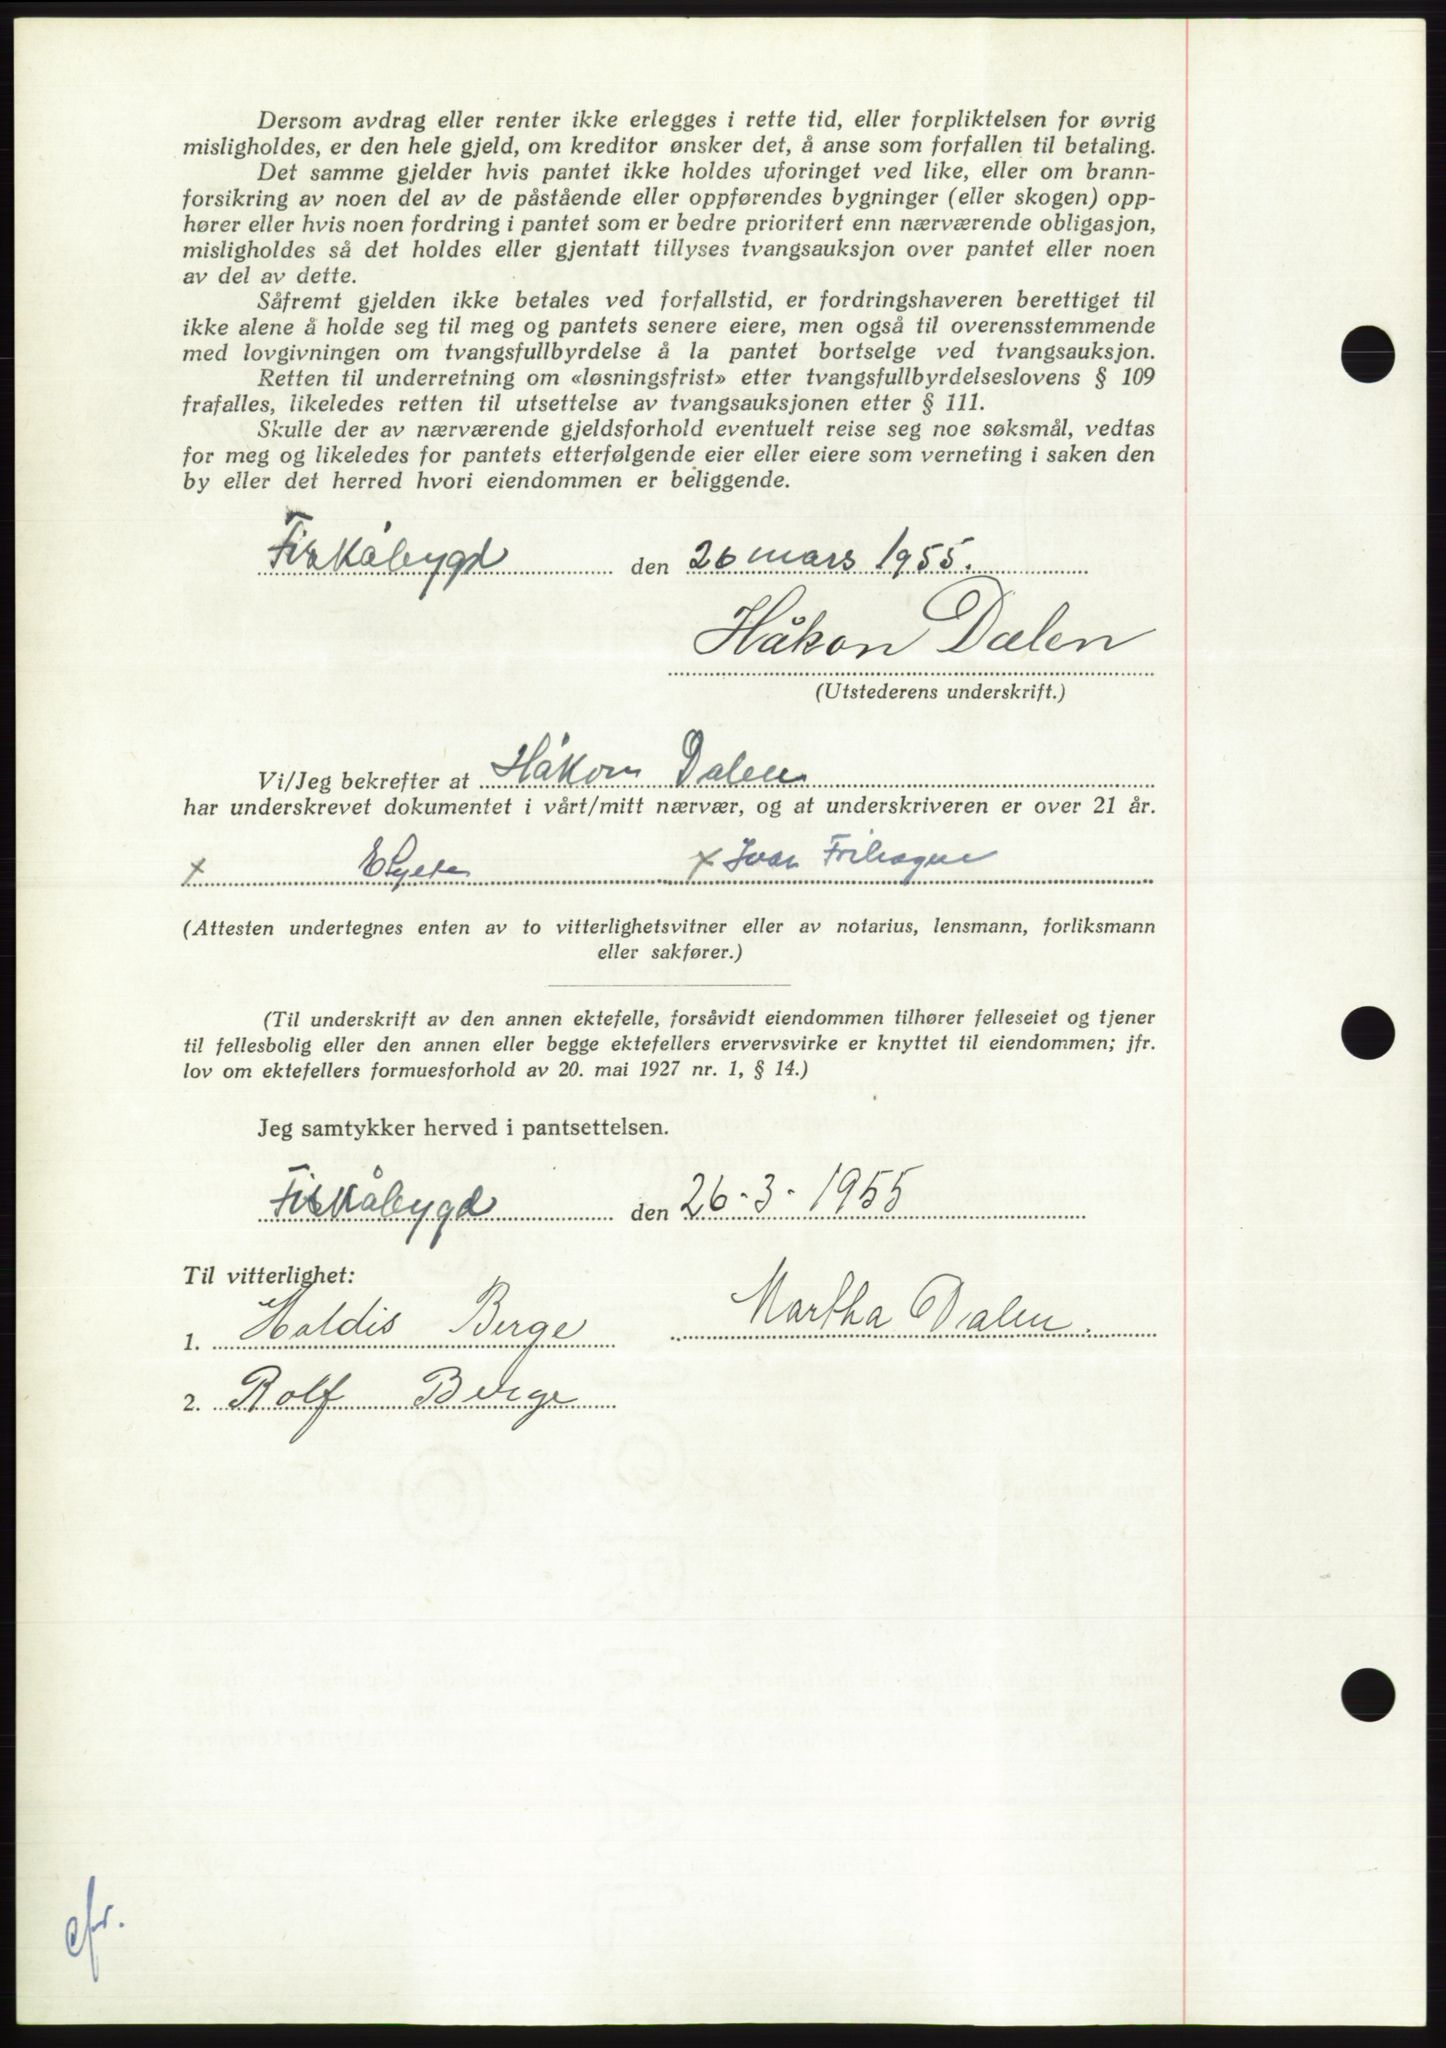 Dersom avdrag eller renter ikke erlegges i rette tid, eller forpliktelsen for øvrig
misligholdes, er den hele gjeld, om kreditor ønsker det, å anse som forfallen til betaling.
Det samme gjelder hvis pantet ikke holdes uforinget ved like, eller om brann-
forsikring av noen del av de påstående eller oppførendes bygninger (eller skogen) opp-
hører eller hvis noen fordring i pantet som er bedre prioritert enn nærværende obligasjon,
misligholdes så det holdes eller gjentatt tillyses tvangsauksjon over pantet eller noen
av del av dette.
Såfremt gjelden ikke betales ved forfallstid, er fordringshaveren berettiget til
ikke alene å holde seg til meg og pantets senere eiere, men også til overensstemmende
med lovgivningen om tvangsfullbyrdelse å la pantet bortselge ved tvangsauksjon.
Retten til underretning om «løsningsfrist» etter tvangsfullbyrdelseslovens § 109
frafalles, likeledes retten til utsettelse av tvangsauksjonen etter § 111.
Skulle der av nærværende gjeldsforhold eventuelt reise seg noe søksmål, vedtas
for meg og likeledes for pantets etterfølgende eier eller eiere som verneting i saken den
by eller det herred hvori eiendommen er beliggende.
Fiskåbygd den 26 mars 1955.
Håkon Dalen
(Utstederens underskrift.)
Vi/Jeg bekrefter at Håkon Dalen
har underskrevet dokumentet i vårt/mitt nærvær, og at underskriveren er over 21 år.
x x Ivar
(Attesten undertegnes enten av to vitterlighetsvitner eller av notarius, lensmann, forliksmann
eller sakfører.)
(Til underskrift av den annen ektefelle, forsåvidt eiendommen tilhører felleseiet og tjener
til fellesbolig eller den annen eller begge ektefellers ervervsvirke er knyttet til eiendommen; jfr.
lov om ektefellers formuesforhold av 20. mai 1927 nr. 1, § 14.)
Jeg samtykker herved i pantsettelsen.
Fiskåbygd den 26-3-1955
Til vitterlighet:
Martha Dalen.
1. Haldis Berge
2. Rolf Berge
cfr.